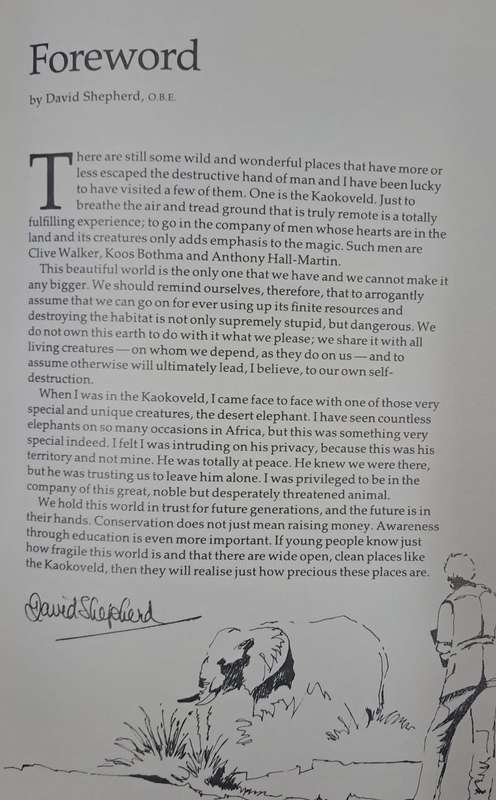 Foreword
by David Shepherd, O.B.E.
There are still some wild and wonderful places that have more or
less escaped the destructive hand of man and I have been lucky
to have visited a few of them. One is the Kaokoveld. Just to
breathe the air and tread ground that is truly remote is a totally
fulfilling experience; to go in the company of men whose hearts are in the
land and its creatures only adds emphasis to the magic. Such men are
Clive Walker, Koos Bothma and Anthony Hall-Martin.
This beautiful world is the only one that we have and we cannot make it
any bigger. We should remind ourselves, therefore, that to arrogantly
assume that we can go on for ever using up its finite resources and
destroying the habitat is not only supremely stupid, but dangerous. We
do not own this earth to do with it what we please; we share it with all
living creatures — on whom we depend, as they do on us — and to
assume otherwise will ultimately lead, I believe, to our own self-
destruction.
When I was in the Kaokoveld, I came face to face with one of those very
special and unique creatures, the desert elephant. I have seen countless
elephants on so many occasions in Africa, but this was something very
special indeed. I felt I was intruding on his privacy, because this was his
territory and not mine. He was totally at peace. He knew we were there,
but he was trusting us to leave him alone. I was privileged to be in the
company of this great, noble but desperately threatened animal.
We hold this world in trust for future generations, and the future is in
their hands. Conservation does not just mean raising money. Awareness
through education is even more important. If young people know just
how fragile this world is and that there are wide open, clean places like
the Kaokoveld, then they will realise just how precious these places are.
David Shepherd